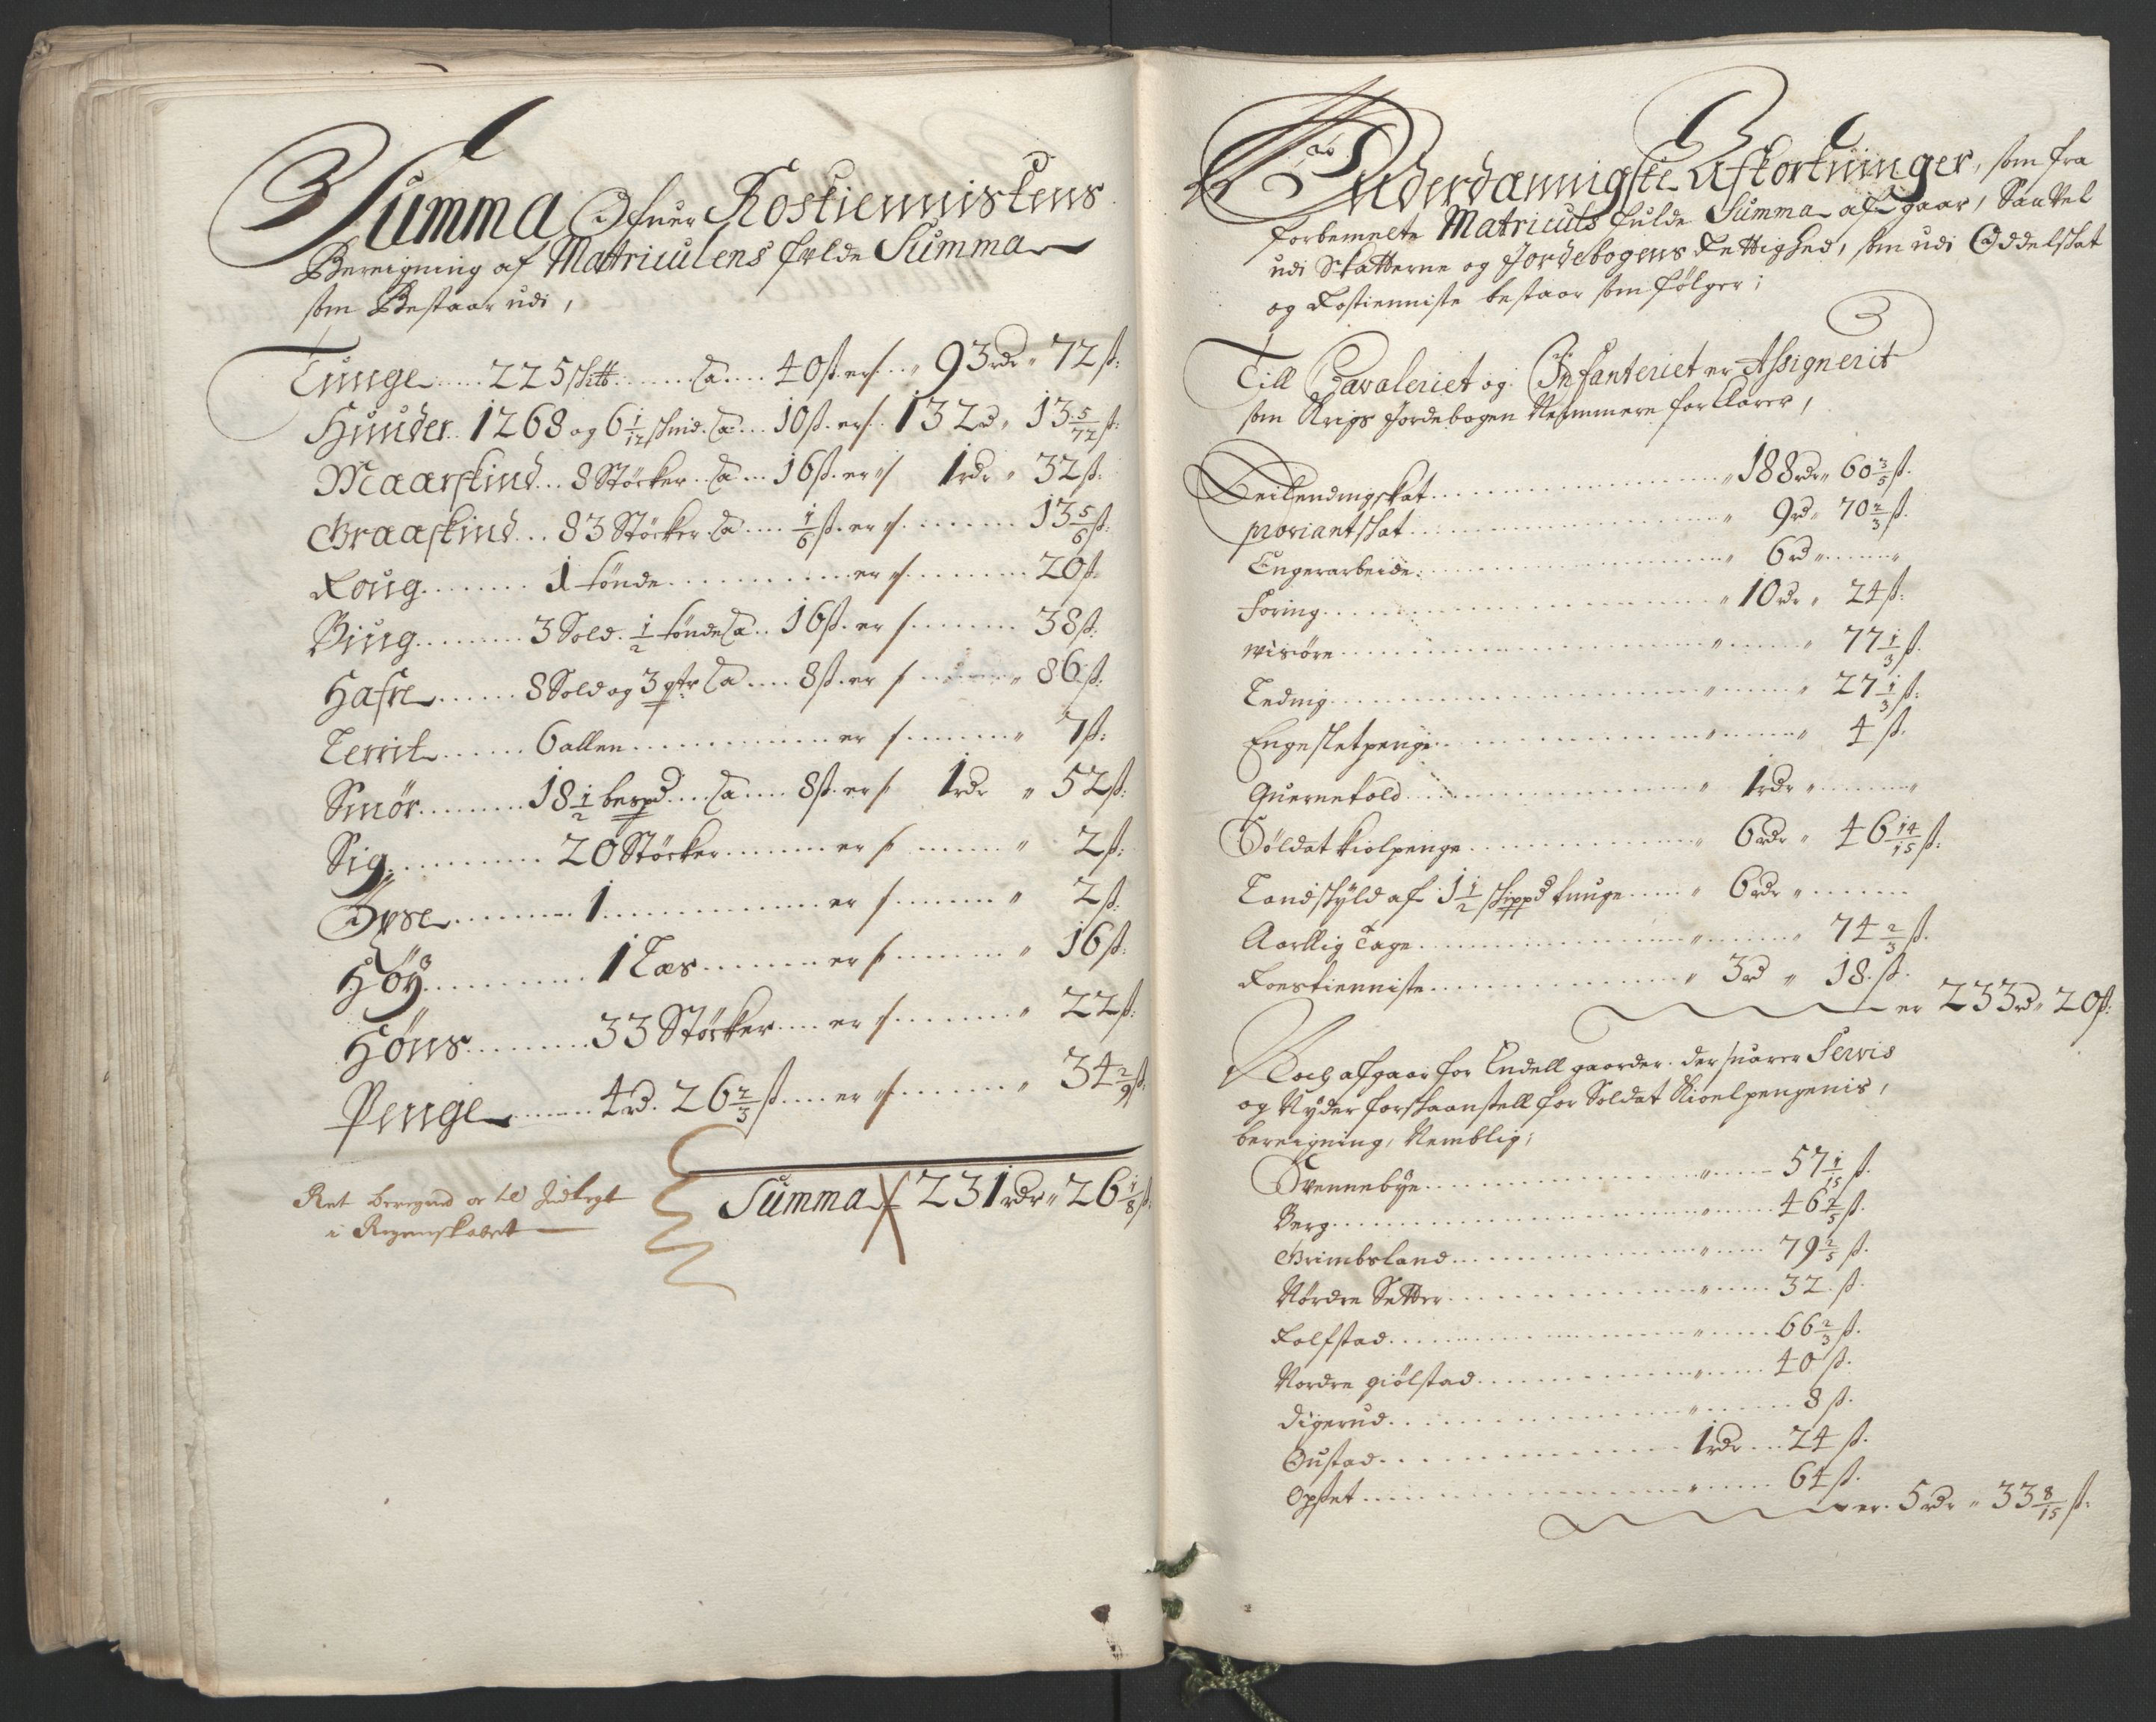 Summa Ofuer Rostiennistens
Bereigning af Matriculens fulde Summa
som Bestaar udi,
Tunge 225 skitt a 40 ß. er 93 rdr 72 ß:
Huuder 1268 og 6 1/12 skind a 10 ß. er 132 rd 13 5/72 ß:
Maarskind 8 Støcker a 16 ß. er 1 rdr 32 ß:
Graaskind 83 Støcker a 1/6 ß. er 13 5/6 ß:
Roug 1 tønde er 20 ß:
Biug 3 Sold. 1/2 tønde a 16 ß. er 38 ß:
Hafre 8 Sold og 3 qtr a 8 ß. er 86 ß:
Lerrit 6 allen er 7 ß:
Smør 18 1/2 bespd a 8 ß. er 1 rdr 52 ß:
Sig 20 Støcker er 2 ß:
Oxse 1 er 2 ß:
Høy 1 Læs er 16 ß:
Høns 33 Støcker er 22 ß:
Penge 4 rd. 26 2/3 ß er 34 2/9 ß:
Summa 231 rdr 26 1/8 ß:
Ret beregned og til Indtegt
i Regenskabet
Underdannigste Afkortninger, som fra
forbemelte Matriculs fulde Summa afgaar, Saavel
udi Skatterne og Jordebogens Rettighed, som udi Oddelskat
og Rostienniste bestaar som følger;
Till Cavaleriet og Infanteriet er Assignerit
som Krigs Jordebogen Nemmere forklarer,
Leilendingskat 188 rdr 60 3/5 ß.
proviantskat 9 rd 70 2/3 ß.
Engerarbeide 6 rd
Foring 10 rdr 24 ß:
visøre 77 1/3 ß.
Leding 27 1/3 ß:
Engesletpenge 4 ß.
Quernetold 1 rdr
Soldat kiolpenge 6 rdr 46 14/15 ß:
Landskyld af 1 1/2 skippd tunge 6 rdr
Aarllig Tage 74 2/3 ß.
Roestienniste 3 rd 18 ß.
er 233 rd 20 ß:
Noch afgaar for Endell gaarder der suarer Servis
og Nyder forskaanstell for Soldat Kioelpengenis,
bereigning, Nemblig;
Svennebye 57 1/15 ß.
Berg 46 2/5 ß.
Grimbsland 79 2/5 ß.
Nørdre Setter 32 ß.
Rolfstad 66 2/3 ß.
Nordre giølstad 40 ß.
Digerud 8 ß.
Oustad 1 rdr 24 ß.
Opset 64 ß.
er 5 rdr 33 8/15 ß: